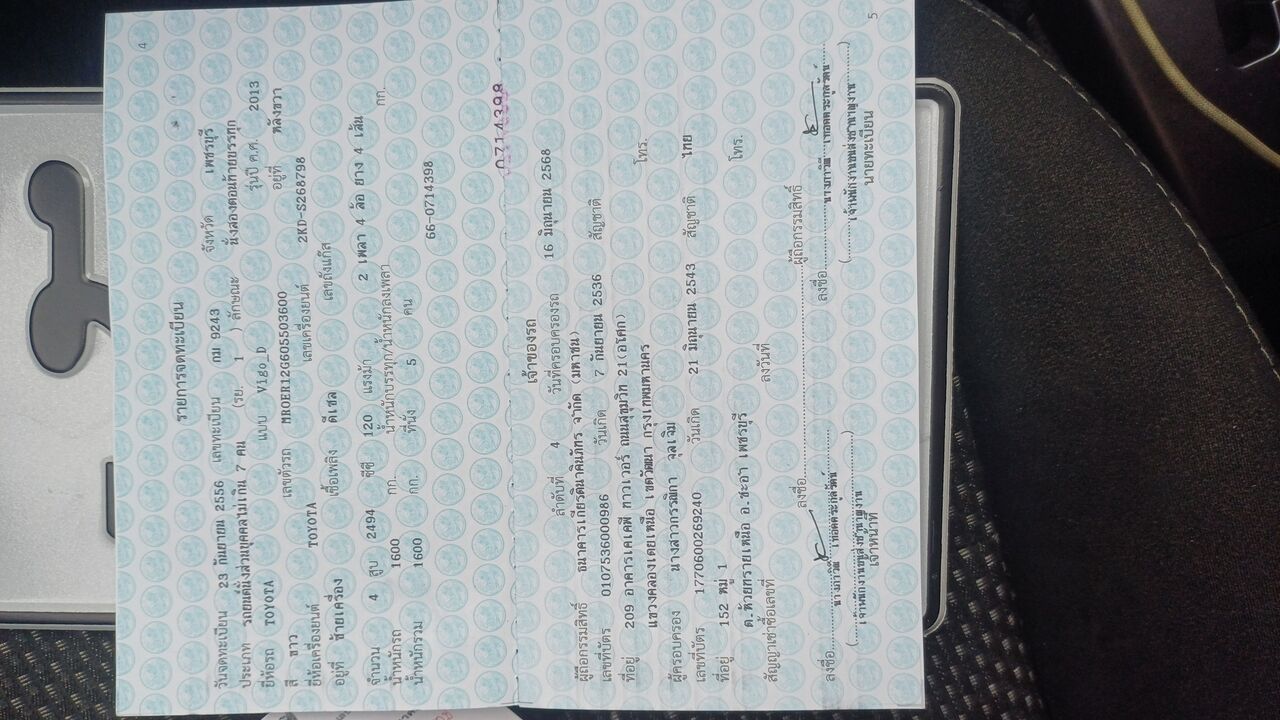 4
รายการจดทะเบียน
วันจดทะเบียน 23 กันยายน 2556 เลขทะเบียน กม 9243 จังหวัด เพชรบุรี
ประเภท รถยนต์นั่งส่วนบุคคลไม่เกิน 7 คน (รย. 1 ) ลักษณะ นั่งสองตอนท้ายบรรทุก
ยี่ห้อรถ TOYOTA แบบ Vigo_D รุ่นปี ค.ศ. 2013
สี ขาว เลขตัวรถ MROER12G605503600 อยู่ที่ หลังขวา
ยี่ห้อเครื่องยนต์ TOYOTA เลขเครื่องยนต์ 2KD-S268798
อยู่ที่ ซ้ายเครื่อง เชื้อเพลิง ดีเซล เลขถังแก๊ส
จำนวน 4 สูบ 2494 ซีซี 120 แรงม้า 2 เพลา 4 ล้อ ยาง 4 เส้น
น้ำหนักรถ 1600 กก. น้ำหนักบรรทุก/น้ำหนักลงเพลา กก.
น้ำหนักรวม 1600 กก. ที่นั่ง 5 คน 66-0714398
0714398
เจ้าของรถ
ลำดับที่ 4 วันที่ครอบครองรถ 16 มิถุนายน 2568
ผู้ถือกรรมสิทธิ์ ธนาคารเกียรตินาคินภัทร จำกัด (มหาชน)
เลขที่บัตร 0107536000986 วันเกิด 7 กันยายน 2536 สัญชาติ
ที่อยู่ 209 อาคารเคเคพี ทาวเวอร์ ถนนสุขุมวิท 21(อโศก)
แขวงคลองเตยเหนือ เขตวัฒนา กรุงเทพมหานคร โทร.
ผู้ครอบครอง นางสาวกรรณิกา จุลเจิม
เลขที่บัตร 1770600269240 วันเกิด 21 มิถุนายน 2543 สัญชาติ ไทย
ที่อยู่ 152 หมู่ 1
ต.ห้วยทรายเหนือ อ.ชะอำ เพชรบุรี โทร.
สัญญาเช่าซื้อเลขที่ ลงวันที่
ลงชื่อ ผู้ถือกรรมสิทธิ์
ลงชื่อ ลงชื่อ
(เจ้าพนักงานขนส่งชำนาญงาน) (เจ้าพนักงานขนส่งชำนาญงาน)
เจ้าหน้าที่ นายทะเบียน
5